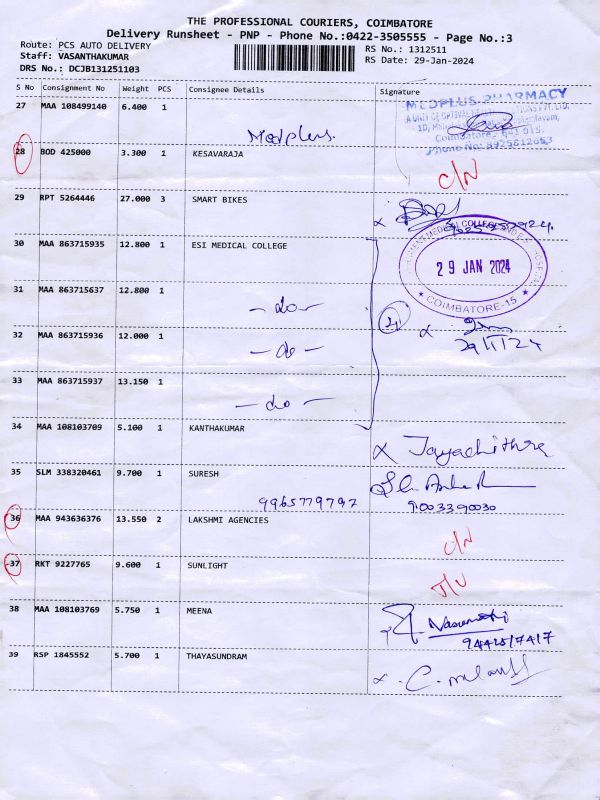 THE PROFESSIONAL COURIERS, COIMBATORE
Delivery Runsheet - PNP - Phone No.:0422-3505555 - Page No.:3
Route: PCS AUTO DELIVERY
RS No.: 1312511
Staff: VASANTHAKUMAR
RS Date: 29-Jan-2024
DRS No.: DCJB131251103
S No Consignment No Weight PCS Consignee Details Signature
27 MAA 108499140 6.400 1
Medplus.
MEDPLUS PHARMACY
Coimbatore - 641 015.
Phone No: 8925812653
28 BOD 425000 3.300 1 KESAVARAJA
C/N
29 RPT 5264446 27.000 3 SMART BIKES
30 MAA 863715935 12.800 1 ESI MEDICAL COLLEGE
29 JAN 2024
★ COIMBATORE-15 ★
31 MAA 863715637 12.800 1
- do -
32 MAA 863715936 12.000 1
- do -
4
29/1/24
33 MAA 863715937 13.150 1
- do -
34 MAA 108103709 5.100 1 KANTHAKUMAR
Jayachithra
35 SLM 338320461 9.700 1 SURESH
9965779797
9003390030
36 MAA 943636376 13.550 2 LAKSHMI AGENCIES
C/N
37 RKT 9227765 9.600 1 SUNLIGHT
38 MAA 108103769 5.750 1 MEENA
39 RSP 1845552 5.700 1 THAYASUNDRAM